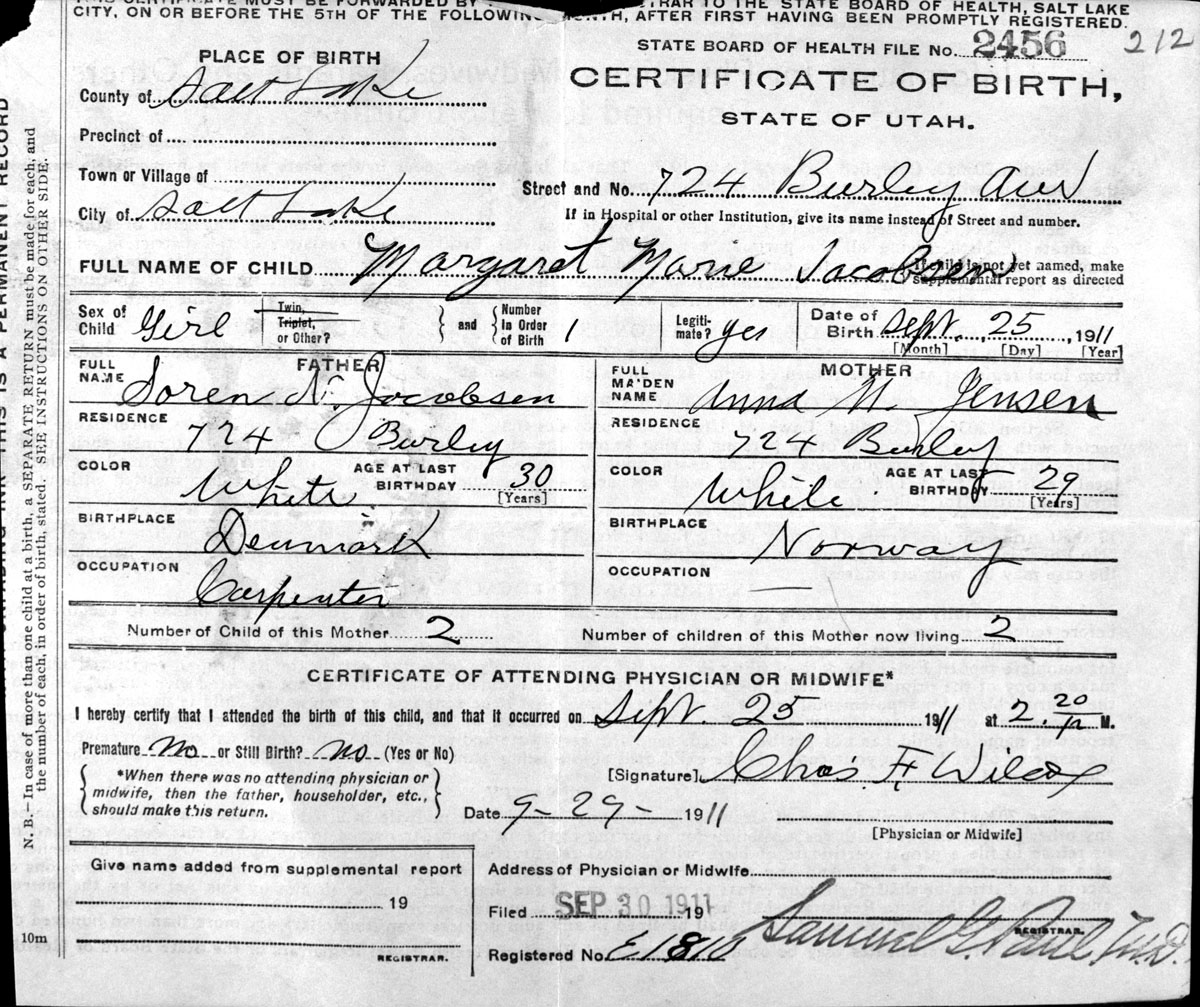 CITY, ON OR BEFORE THE 5TH OF THE FOLLOWING MONTH, AFTER FIRST HAVING BEEN PROMPTLY REGISTERED.
STATE BOARD OF HEALTH FILE No. 2456 212
PLACE OF BIRTH
CERTIFICATE OF BIRTH,
County of Salt Lake
STATE OF UTAH.
Precinct of
Town or Village of
Street and No. 724 Burley Ave
City of Salt Lake
If in Hospital or other Institution, give its name instead of Street and number.
FULL NAME OF CHILD Margaret Marie Jacobsen
If child is not yet named, make supplemental report as directed
Sex of Child Girl Twin, Triplet, or Other? and Number in Order of Birth 1 Legiti-mate? yes Date of Birth Sept. 25, 1911
[Month] [Day] [Year]
FATHER
FULL NAME Soren N. Jacobsen
RESIDENCE 724 Burley
COLOR White AGE AT LAST BIRTHDAY 30 [Years]
BIRTHPLACE Denmark
OCCUPATION Carpenter
MOTHER
FULL MAIDEN NAME Anna N. Jensen
RESIDENCE 724 Burley
COLOR White AGE AT LAST BIRTHDAY 29 [Years]
BIRTHPLACE Norway
OCCUPATION —
Number of Child of this Mother 2 Number of children of this Mother now living 2
CERTIFICATE OF ATTENDING PHYSICIAN OR MIDWIFE*
I hereby certify that I attended the birth of this child, and that it occurred on Sept. 25 1911 at 2.20 P M.
Premature no or Still Birth? no (Yes or No)
*When there was no attending physician or
midwife, then the father, householder, etc.,
should make this return.
[Signature] Chas. F. Wilcox
Date 9-29-1911
[Physician or Midwife]
Give name added from supplemental report
19
REGISTRAR.
10m
Address of Physician or Midwife
Filed SEP 30 1911 191
REGISTRAR.
Registered No.
Samuel G. Paul, M.D.
THIS IS A PERMANENT RECORD
N. B.—In case of more than one child at a birth, a SEPARATE RETURN must be made for each, and
the number of each, in order of birth, stated. SEE INSTRUCTIONS ON OTHER SIDE.